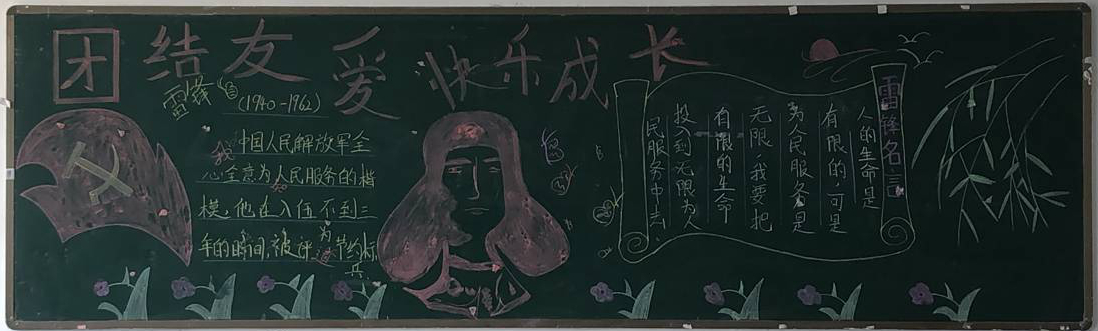 团结友爱快乐成长
雷锋
(1940-1962)
中国人民解放军全
心全意为人民服务的楷
模,他在入伍不到三
年的时间,被评为节约标
兵
雷锋名言
人的生命是
有限的,可是
为人民服务是
无限,我要把
有限的生命
投入到无限为人
民服务中去